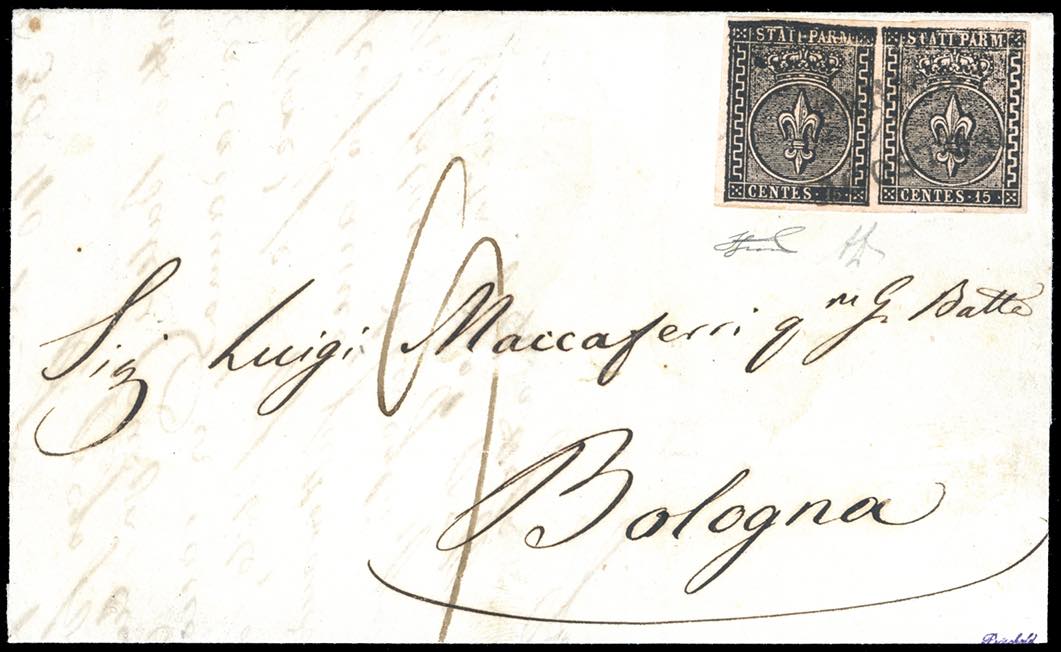 STATI PARM
STATI PARM
CENTES · 15
CENTES · 15 ·
Sig Luigi Maccaferri q m G. Batta
Bologna